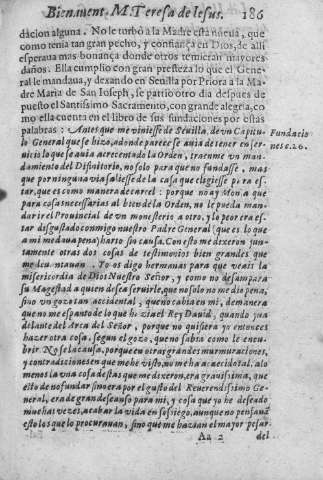 Bienavent. M. Teresa de Iesus. 186
dacion alguna. No le turbò a la Madre esta nueua, que
como tenia tan gran pecho, y confiança en Dios, de alli
esperaua mas bonança donde otros temieran mayores
daños. Ella cumplio con gran presteza lo que el Gene-
ral le mandaua, y dexando en Seuilla por Priora a la Ma-
dre Maria de San Ioseph, se partio otro dia despues de
puesto el Santissimo Sacramento, con grande alegria, co
mo ella cuenta en el libro de sus fundaciones por estas
palabras: Antes que me viniesse de Seuilla, de vn Capitu-
lo General que se hizo, adonde parece se auia de tener en ser-
uicio lo que se auia acrecentado la Orden, traenme vn man-
damiento del Difinitorio, no solo para que no fundasse, mas
que por ninguna via saliesse de la casa que eligiesse para es-
tar, que es como manera de carcel: porque no ay Monja que
para cosas necessarias al bien de la Orden, no le pueda man-
dar ir el Provincial de vn monesterio a otro, y lo peor era es-
tar disgustado conmigo nuestro Padre General (que es lo que
a mi me daua pena) harto sin causa. Con esto me dixeron jun-
tamente otras dos cosas de testimonios bien grandes que
me leuantauan. Yo os digo hermanas para que veais la
misericordia de Dios Nuestro Señor, y como no desampara
su Magestad a quien desea seruirle, que no solo no me dio pena,
sino vn gozo tan accidental, que no cabia en mi, de manera
que no me espanto de lo que hazia el Rey Dauid, quando yua
delante del Arca del Señor, porque no quisiera yo entonces
hazer otra cosa, segun el gozo, que no sabia como le encu-
brir. No se la causa, porque en otras grandes murmuraciones,
y contradiciones en que me he visto, no me ha acaecido tal. alo
menos la vna cosa destas que me dixeron, era grauissima, que
esto de no fundar sino era por el gusto del Reuerendissimo Ge-
neral, era de gran descanso para mi, y cosa que yo he deseado
muchas vezes, acabar la vida en sossiego, aunque no pensauã
esto los que lo procurauan, sino que me hazian el mayor pesar
Aa 2 del
Fundacio
nes c. 26.